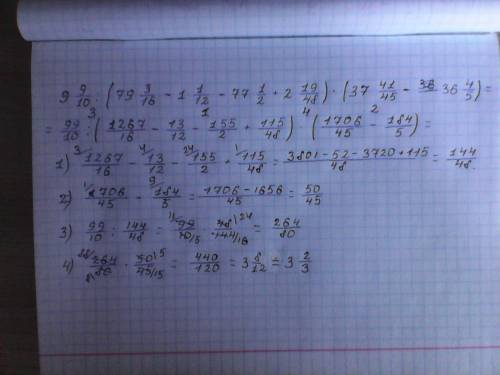 9 9/10 : (79 3/16 - 1 1/12 - 77 1/2 + 2 19/48) · (37 41/45 - 36 4/5) =
= 99/10 : (1267/16 - 13/12 - 155/2 + 115/48) · (1706/45 - 184/5) =
1) 1267/16 - 13/12 - 155/2 + 115/48 = (3801 - 52 - 3720 + 115)/48 = 144/48
2) 1706/45 - 184/5 = (1706 - 1656)/45 = 50/45
3) 99/10 : 144/48 = 99/10 · 48/144 = 264/80
4) 264/80 · 50/45 = 440/120 = 3 8/12 = 3 2/3